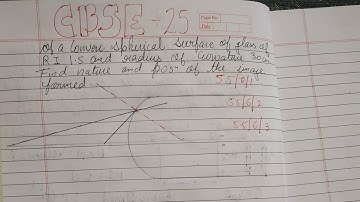 CBSE - 25
Page No
Date
of a convex spherical surface of glass of
R I 1.5 and radius of curvature 30cm
Find nature and pos of the image
formed
55/6/1
55/6/2
55/6/3